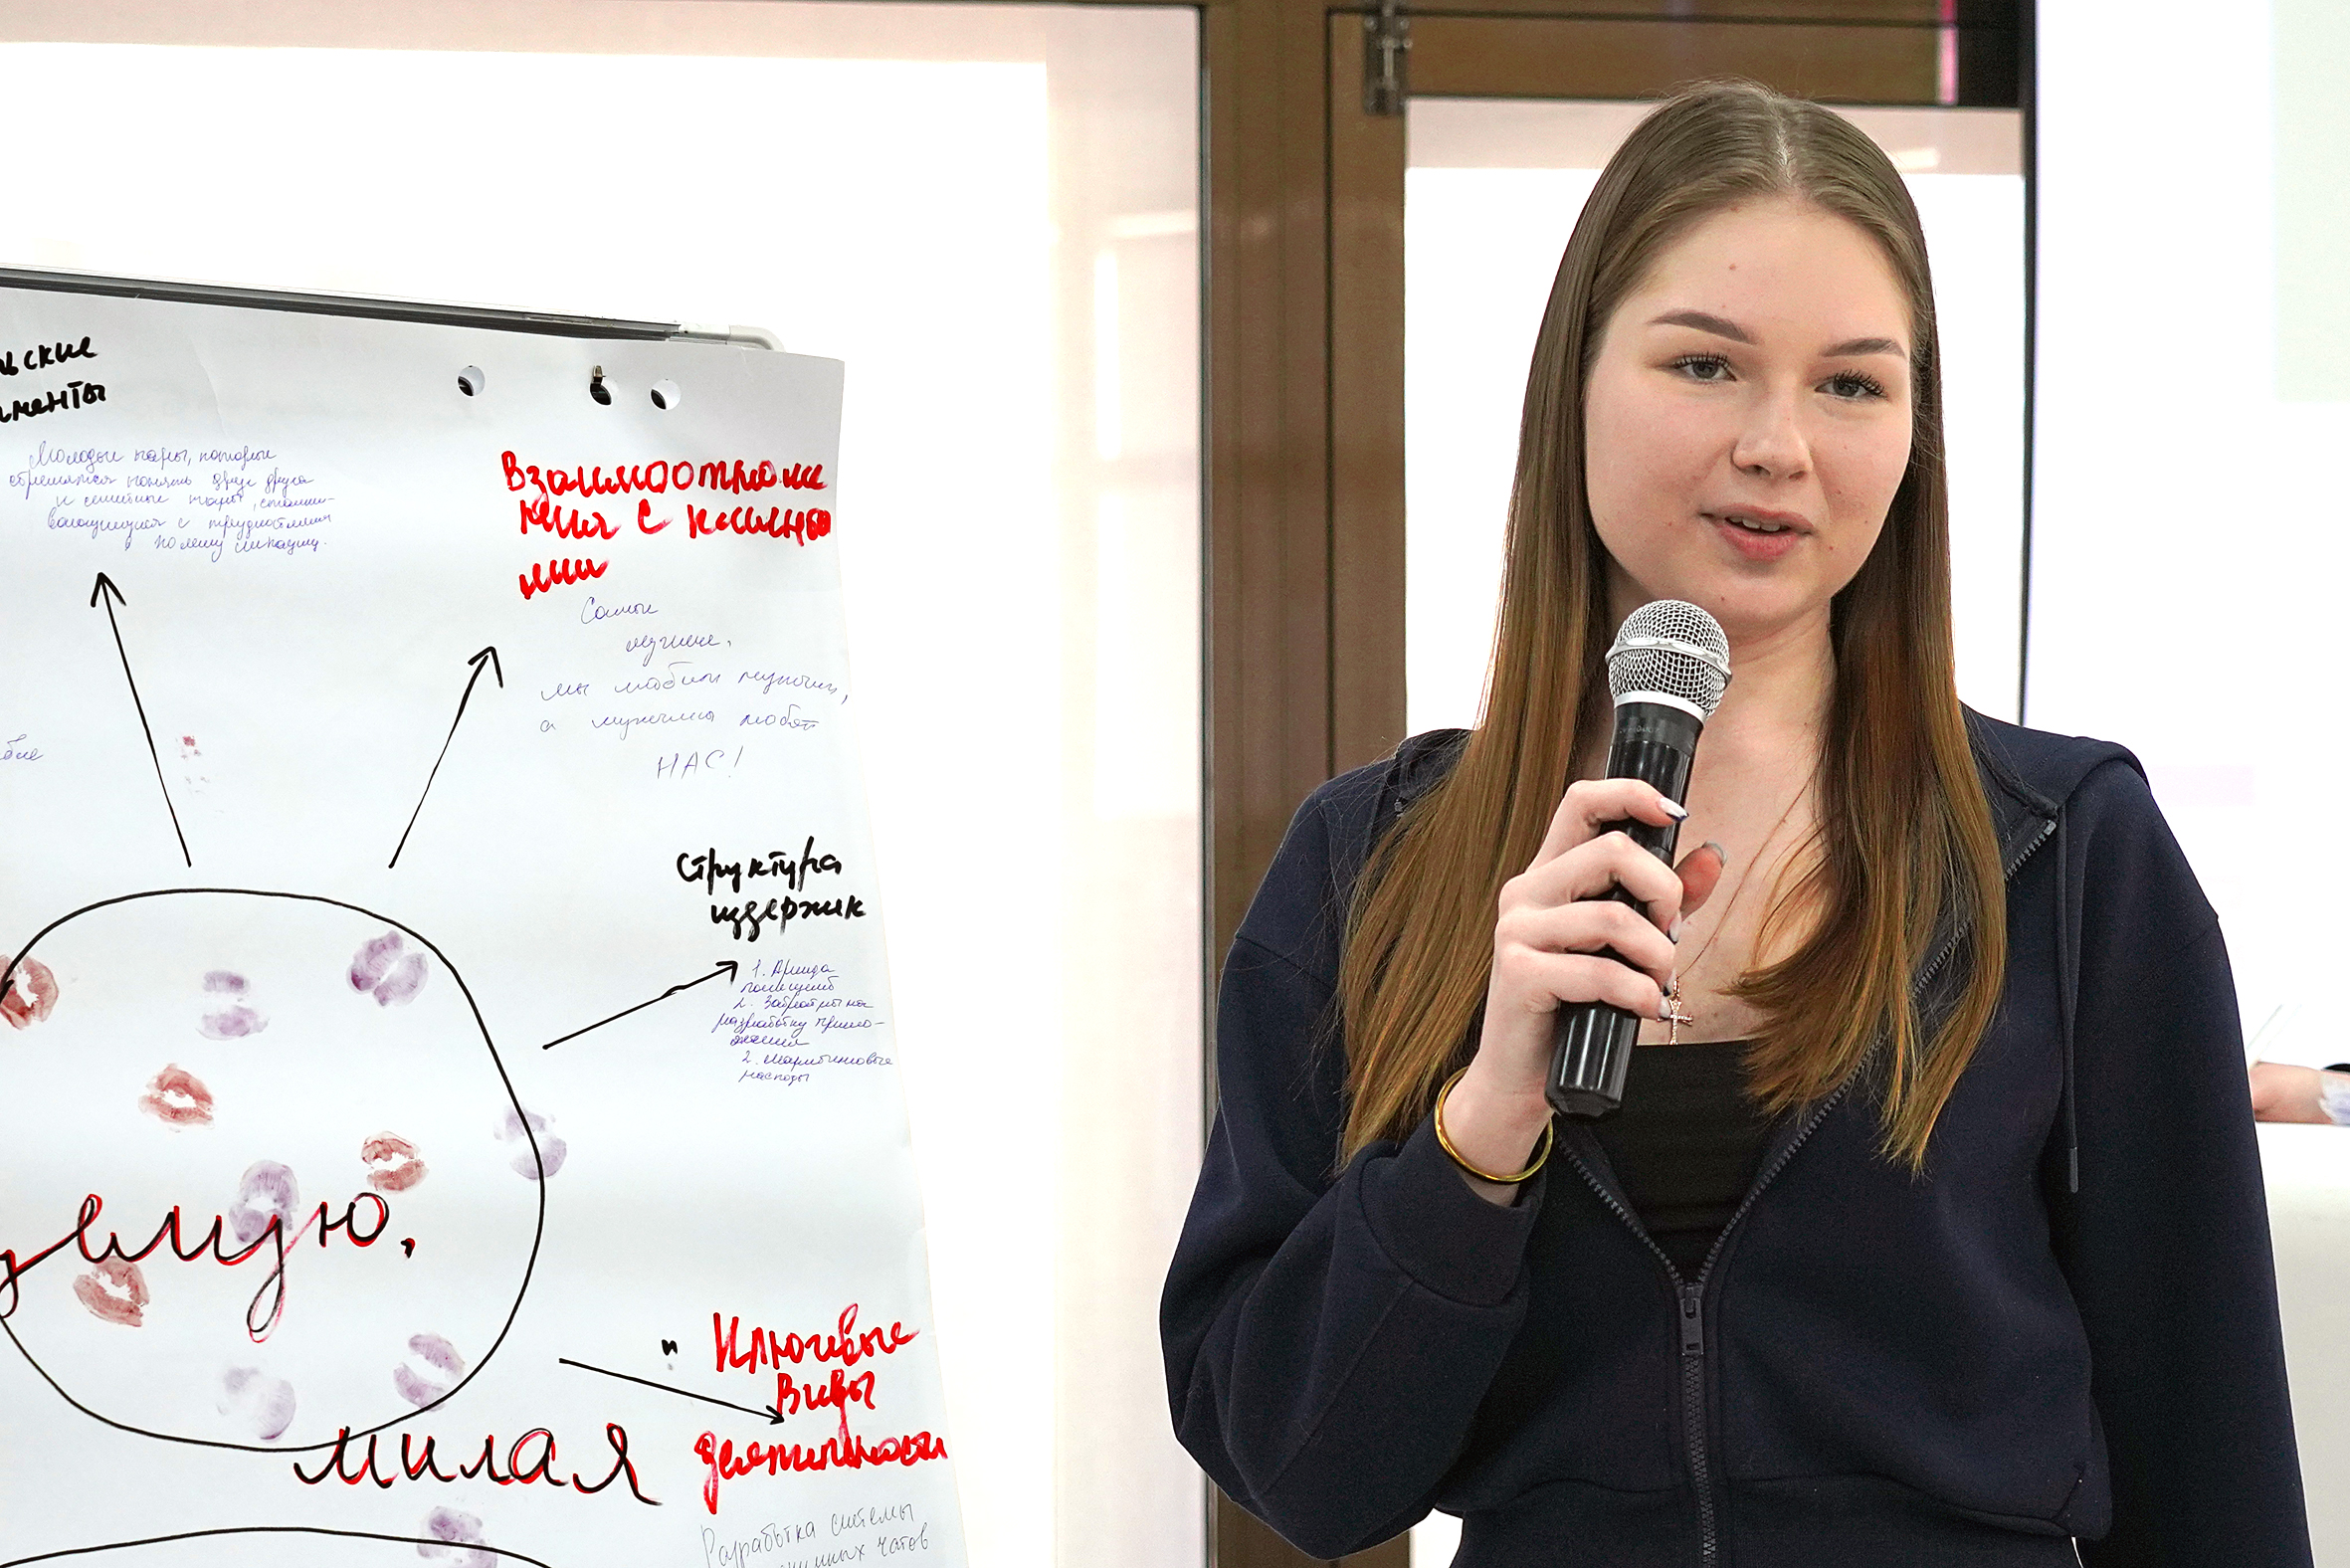 ьские
менты
Молодые пары, которые
стремятся понять друг друга
и семейные пары, сталки-
вающиеся с трудностями
Взаимоотноше
ния с клиента
ми
Самые
лучшие,
мы любим мужчин,
а мужчины любят
НАС!
Структура
издержек
1. Аренда
помещений
2. Затраты на
разработку прило-
жения
2. Маркетинговые
расходы
демую,
милая
Ключевые
виды
деятельности
Разработка системы
чатов